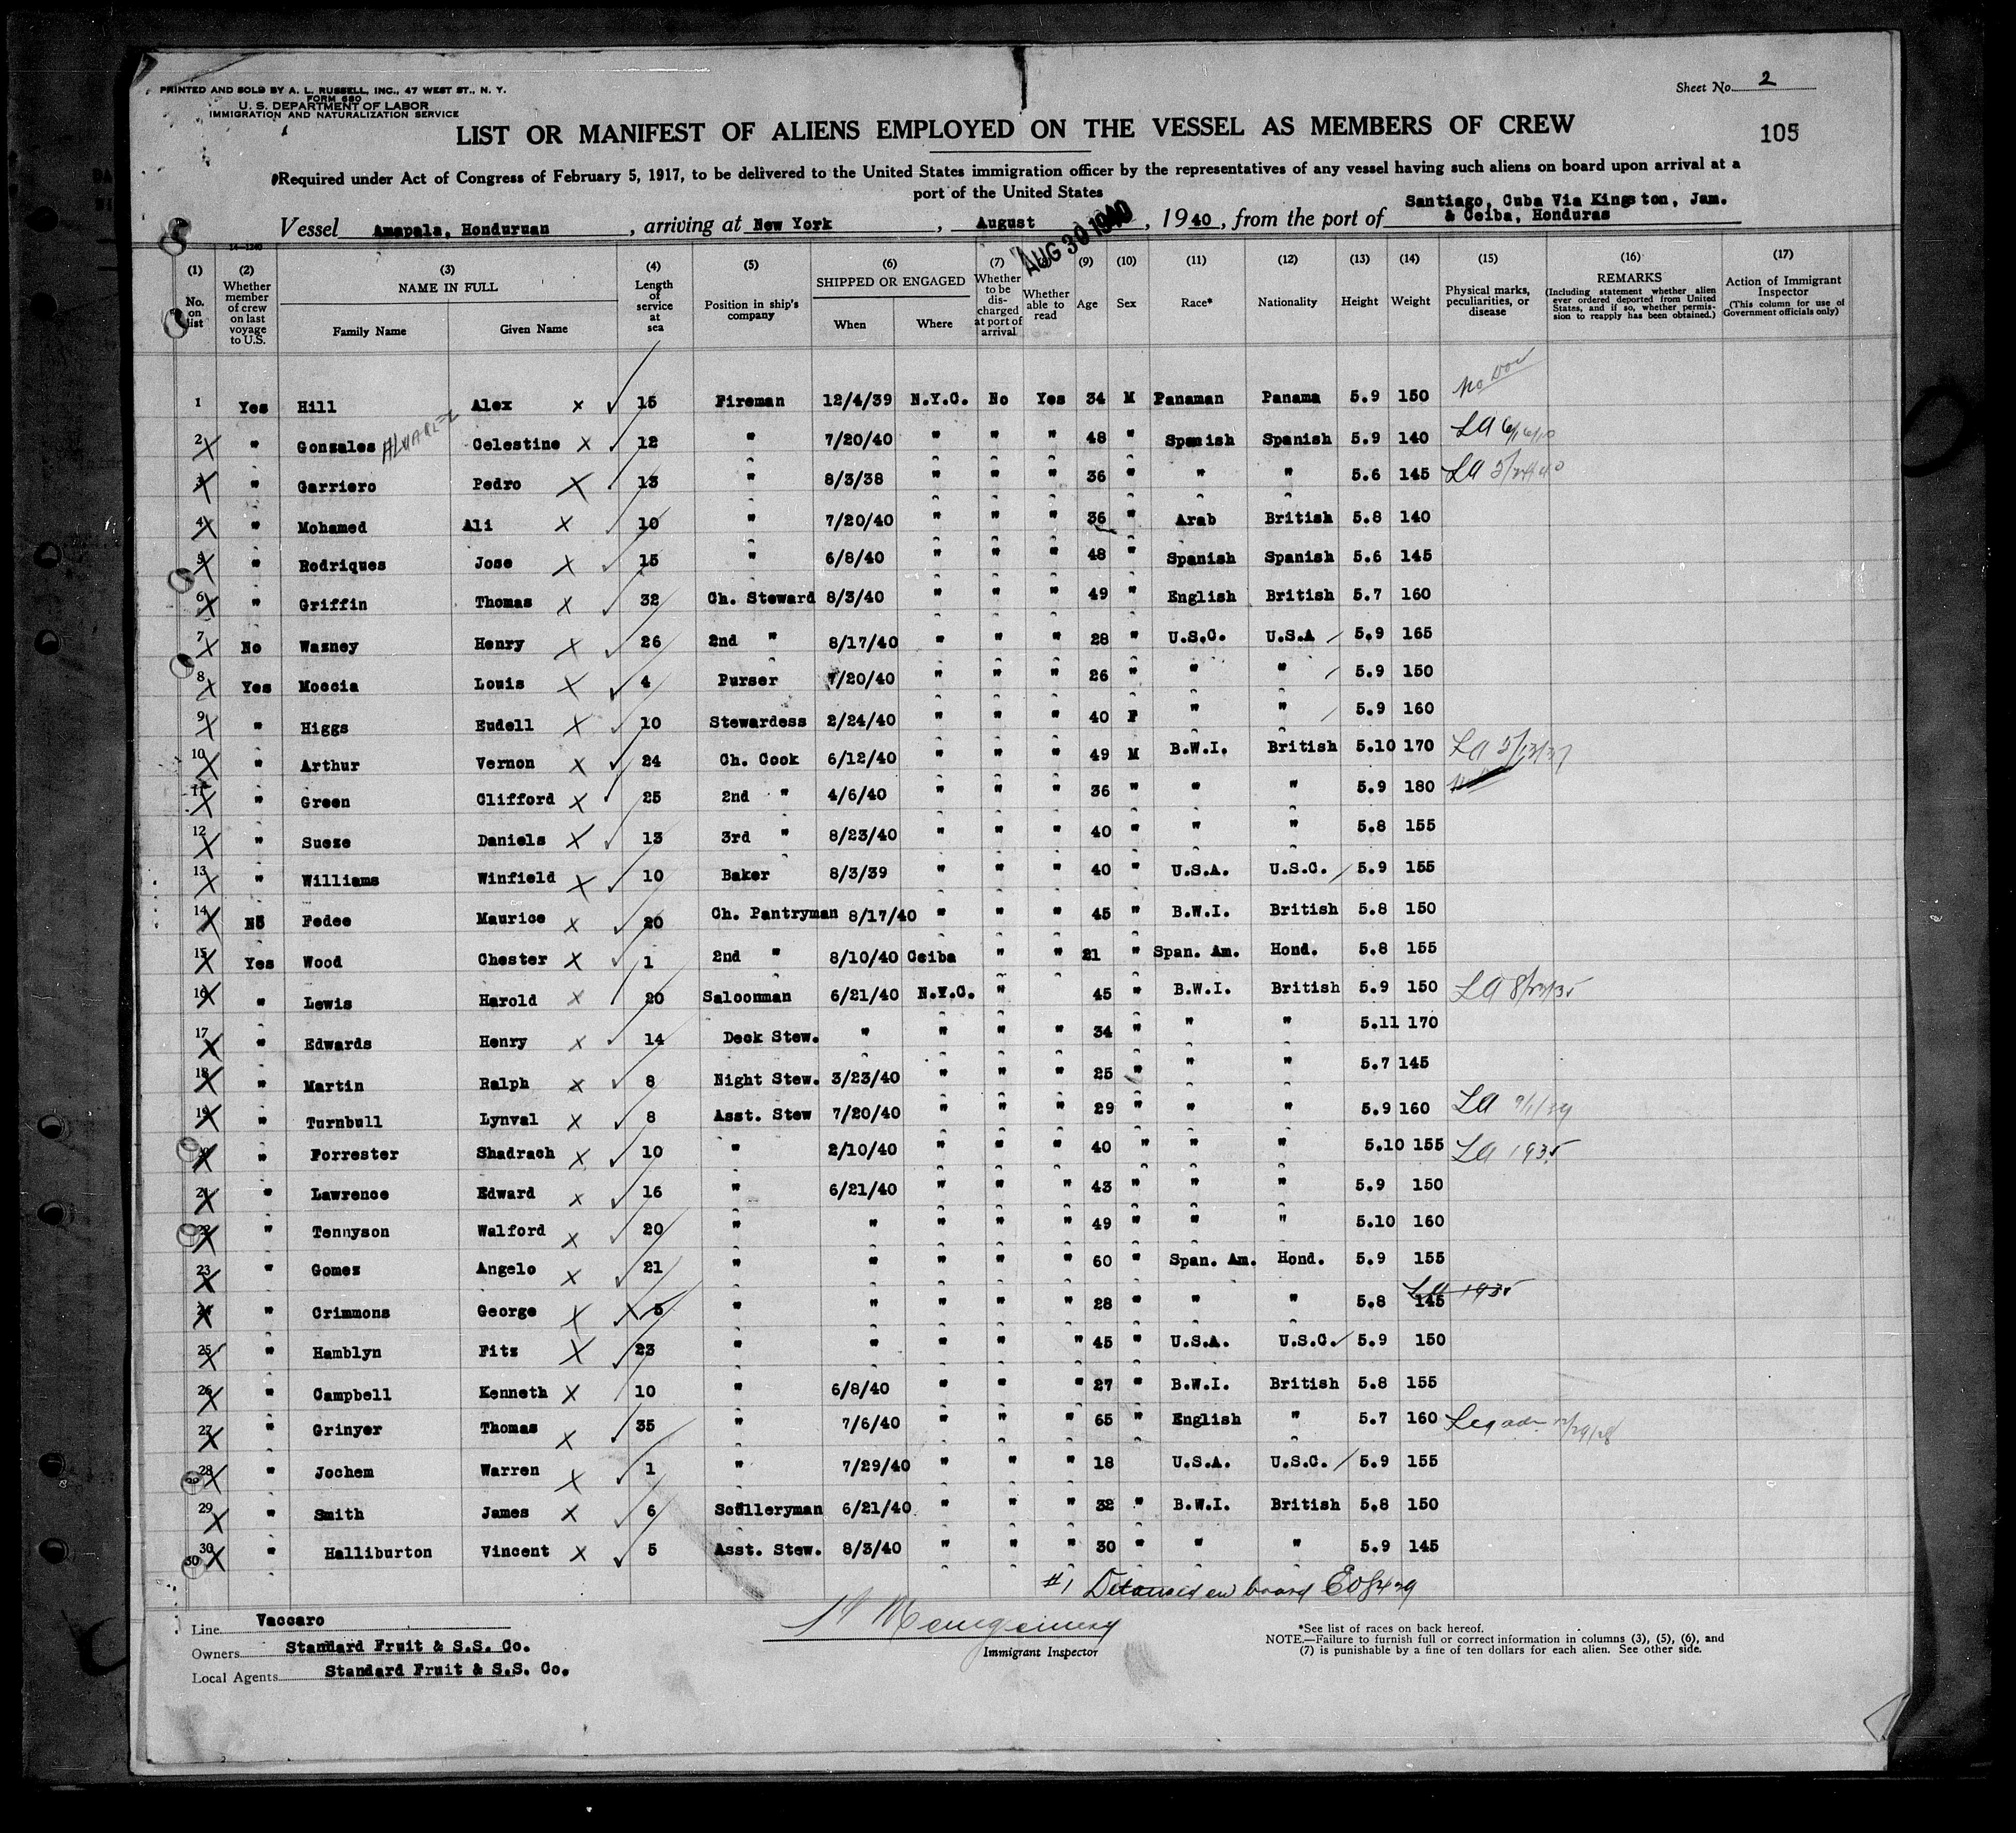 PRINTED AND SOLD BY A. L. RUSSELL, INC., 47 WEST ST., N. Y.
FORM 680
U. S. DEPARTMENT OF LABOR
IMMIGRATION AND NATURALIZATION SERVICE
Sheet No. 2
LIST OR MANIFEST OF ALIENS EMPLOYED ON THE VESSEL AS MEMBERS OF CREW
105
Required under Act of Congress of February 5, 1917, to be delivered to the United States immigration officer by the representatives of any vessel having such aliens on board upon arrival at a
port of the United States
Vessel Amapala, Honduruan, arriving at New York, August, 1940, from the port of Santiago, Cuba Via Kingston, Jam.
& Ceiba, Honduras
AUG 30 1940
14-1240
(1) No. on list
(2) Whether member of crew on last voyage to U.S.
(3) NAME IN FULL Family Name Given Name
(4) Length of service at sea
(5) Position in ship's company
(6) SHIPPED OR ENGAGED When Where
(7) Whether to be discharged at port of arrival
Whether able to read
(9) Age
(10) Sex
(11) Race*
(12) Nationality
(13) Height
(14) Weight
(15) Physical marks, peculiarities, or disease
(16) REMARKS (Including statement whether alien ever ordered deported from United States, and if so, whether permission to reapply has been obtained.)
(17) Action of Immigrant Inspector (This column for use of Government officials only)
1 Yes Hill Alex x 15 Fireman 12/4/39 N.Y.C. No Yes 34 M Panaman Panama 5.9 150
2 " Gonzales ALVAREZ Celestine x 12 " 7/20/40 " " " 48 " Spanish Spanish 5.9 140 LA
3 " Garriero Pedro x 13 " 8/3/38 " " " 36 " " " 5.6 145 LA
4 " Mohamed Ali x 10 " 7/20/40 " " " 36 " Arab British 5.8 140
5 " Rodriques Jose x 15 " 6/8/40 " " " 48 " Spanish Spanish 5.6 145
6 " Griffin Thomas x 32 Ch. Steward 8/3/40 " " " 49 " English British 5.7 160
7 No Wazney Henry x 26 2nd " 8/17/40 " " " 28 " U.S.C. U.S.A 5.9 165
8 Yes Moccia Louis x 4 Purser 7/20/40 " " " 26 " " " 5.9 150
9 " Higgs Eudell x 10 Stewardess 2/24/40 " " " 40 F " " 5.9 160
10 " Arthur Vernon x 24 Ch. Cook 6/12/40 " " " 49 M B.W.I. British 5.10 170 LA 5/13/37
11 " Green Clifford x 25 2nd " 4/6/40 " " " 36 " " " 5.9 180
12 " Sueze Daniels x 13 3rd " 8/23/40 " " " 40 " " " 5.8 155
13 " Williams Winfield x 10 Baker 8/3/39 " " " 40 " U.S.A. U.S.C. 5.9 155
14 No Fedee Maurice x 20 Ch. Pantryman 8/17/40 " " " 45 " B.W.I. British 5.8 150
15 Yes Wood Chester x 1 2nd " 8/10/40 Ceiba " " 21 " Span. Am. Hond. 5.8 155
16 " Lewis Harold x 20 Saloonman 6/21/40 N.Y.C. " 45 " B.W.I. British 5.9 150 LA
17 " Edwards Henry x 14 Deck Stew. " " " " 34 " " " 5.11 170
18 " Martin Ralph x 8 Night Stew. 3/23/40 " " " 25 " " " 5.7 145
19 " Turnbull Lynval x 8 Asst. Stew 7/20/40 " " " 29 " " " 5.9 160 LA
" Forrester Shadrach x 10 " 2/10/40 " " " 40 " " " 5.10 155 LA 1935
21 " Lawrence Edward x 16 " 6/21/40 " " " 43 " " " 5.9 150
22 " Tennyson Walford x 20 " " " " " 49 " " " 5.10 160
23 " Gomez Angelo x 21 " " " " " 60 " Span. Am. Hond. 5.9 155
24 " Crimmons George x 5 " " " " " 28 " " " 5.8 145 LA 1935
25 " Hamblyn Fitz x 23 " " " " " 45 " U.S.A. U.S.C. 5.9 150
26 " Campbell Kenneth x 10 " 6/8/40 " " " 27 " B.W.I. British 5.8 155
27 " Grinyer Thomas x 35 " 7/6/40 " " " 65 " English " 5.7 160 Leg adm 12/29/28
28 " Jochem Warren x 1 " 7/29/40 " " " 18 U.S.A. U.S.C. 5.9 155
29 " Smith James x 6 Sculleryman 6/21/40 " " " 32 " B.W.I. British 5.8 150
30 " Halliburton Vincent x 5 Asst. Stew. 8/3/40 " " " 30 " " " 5.9 145
30
#1 Detained on board
Line Vaccaro
Owners Standard Fruit & S.S. Co.
Local Agents Standard Fruit & S.S. Co.
Immigrant Inspector
*See list of races on back hereof.
NOTE.—Failure to furnish full or correct information in columns (3), (5), (6), and
(7) is punishable by a fine of ten dollars for each alien. See other side.